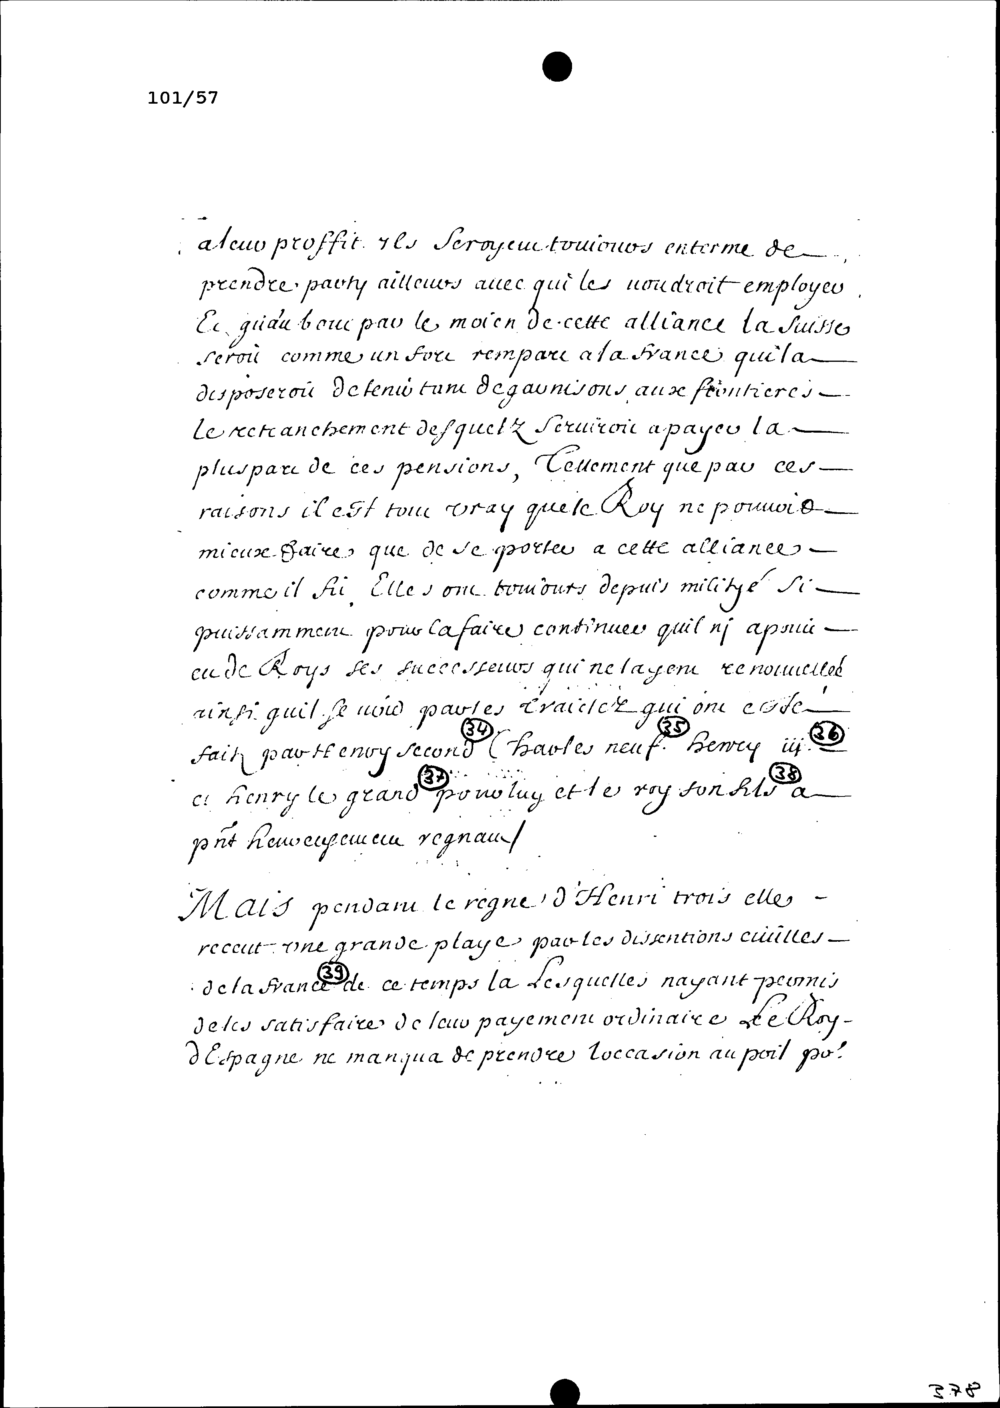 101/57
a leur proffit yls seroyent touiours enterme de
prendre party ailleurs auec qui les voudroit employer
Et qu'au bout par le moien de cette alliance la Suisse
seroit comme un fort rempart a la France qui la
disposeroit de tenir tant de garnisons aux frontieres
Le retranchement desquelz seruiroit a payer la
pluspart de ces pensions, Tellement que par ces
raisons il est tout vray que le Roy ne pouuoit
mieux faire que de se porter a cette alliance
comme il fit, Elles ont touiours depuis militqé si
puissamment pour la faire continuer quil nj a point
eu de Roys ses successeurs qui ne layent renouuellée
ainsi quil se void par les traictez qui ont esté
34 35 36
fait par Henry second Charles neuf. henry iij.
37 38
et henry le grand pour luy et le roy son fils a
pñt heureusement regnant/
Mais pendant le regne d'Henri trois elle
receut une grande playe par les dissentions ciuilles
39
de la France de ce temps la Lesquelles nayant permis
de les satisfaire de leur payement ordinaire Le Roy
d'Espagne ne manqua de prendre loccasion au poil po.
378